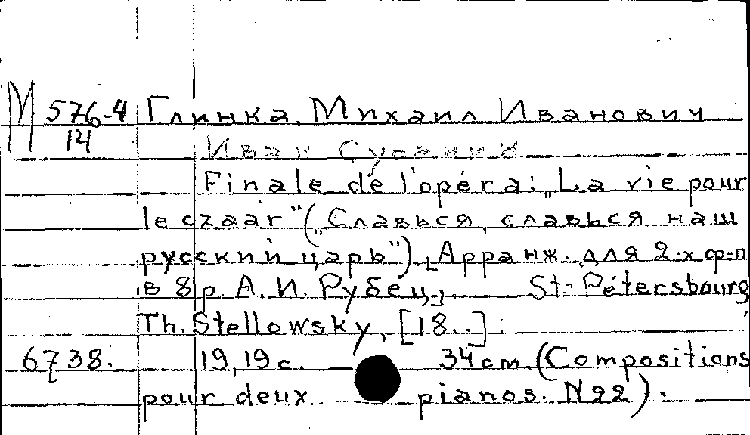 М 576-4 Глинка, Михаил Иванович
14
Иван Сусанин
Finale de l'opéra: „La vie pour
le czaar" („Славься, славься наш
русский царь"). Арранж. для 2-х ф-п
в 8 р. А. И. Рубец. St-Pétersbourg
Th. Stellowsky, [18..].
6738. 19,19 с. 34 см. (Compositions
pour deux pianos. N 22).